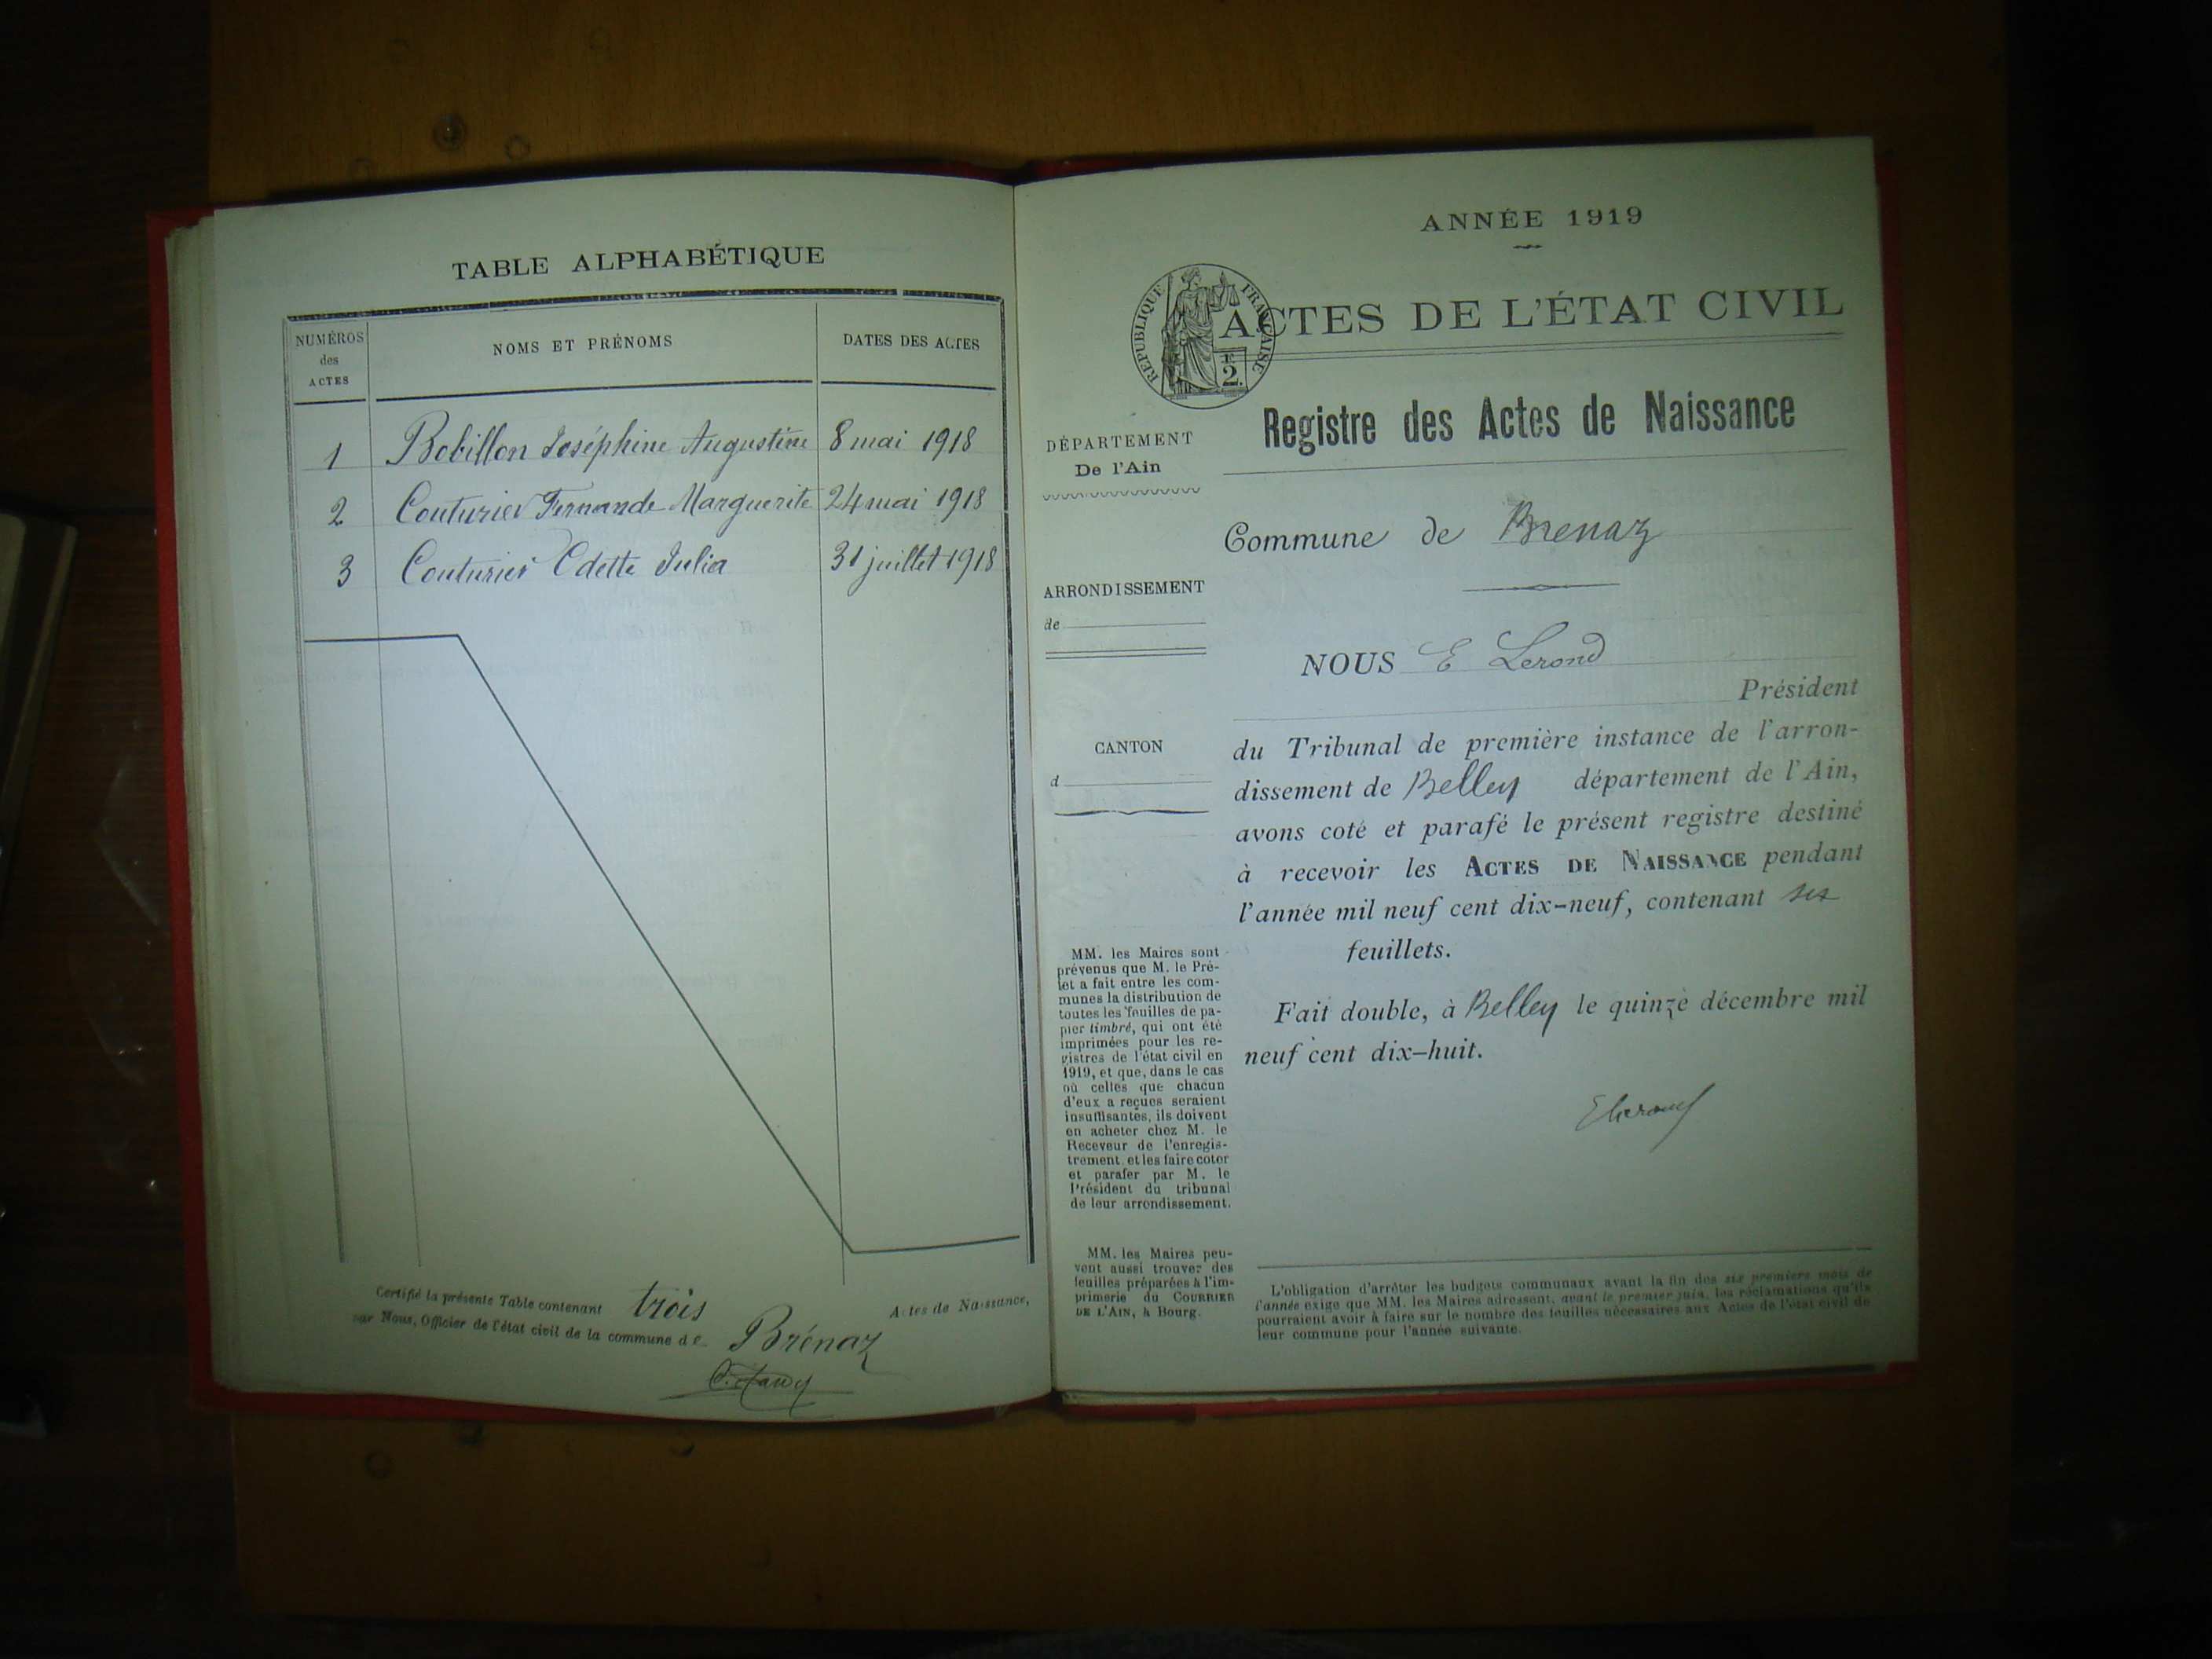 TABLE ALPHABÉTIQUE
NUMÉROS
des
ACTES
NOMS ET PRÉNOMS
DATES DES ACTES
1 Bobillon Joséphine Augustine 8 mai 1918
2 Couturier Fernande Marguerite 24 mai 1918
3 Couturier Odette Julia 31 juillet 1918
Certifié la présente Table contenant trois Actes de Naissance,
par Nous, Officier de l'état civil de la commune de Brénaz
ANNÉE 1919
RÉPUBLIQUE FRANÇAISE
2
ACTES DE L'ÉTAT CIVIL
Registre des Actes de Naissance
DÉPARTEMENT
De l'Ain
Commune de Brenaz
ARRONDISSEMENT
de
NOUS E Lerond
Président
CANTON
d
du Tribunal de première instance de l'arron-
dissement de Belley département de l'Ain,
avons coté et parafé le présent registre destiné
à recevoir les ACTES DE NAISSANCE pendant
l'année mil neuf cent dix-neuf, contenant six
feuillets.
Fait double, à Belley le quinze décembre mil
neuf cent dix-huit.
MM. les Maires sont
prévenus que M. le Pré-
fet a fait entre les com-
munes la distribution de
toutes les feuilles de pa-
pier timbré, qui ont été
imprimées pour les re-
gistres de l'état civil en
1919, et que, dans le cas
où celles que chacun
d'eux a reçues seraient
insuffisantes, ils doivent
en acheter chez M. le
Receveur de l'enregis-
trement et les faire coter
et parafer par M. le
Président du tribunal
de leur arrondissement.
MM. les Maires peu-
vent aussi trouver des
feuilles préparées à l'im-
primerie du COURRIER
DE L'AIN, à Bourg.
L'obligation d'arrêter les budgets communaux avant la fin des six premiers mois de
l'année exige que MM. les Maires adressent, avant le premier juin, les réclamations qu'ils
pourraient avoir à faire sur le nombre des feuilles nécessaires aux Actes de l'état civil de
leur commune pour l'année suivante.